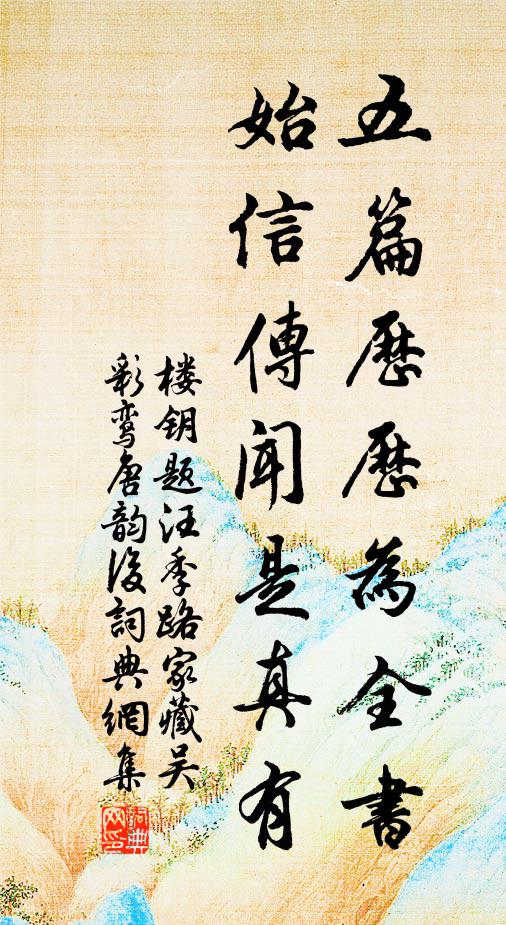 五篇歷歷為全書
始信傳聞是真有
楼钥题汪季路家藏吴
彩鸾唐韵後詞典網集
詞典網印